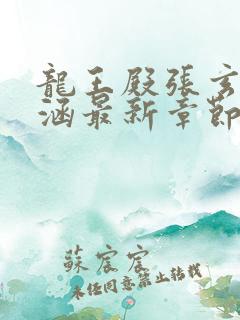 龍王殿張玄
涵最新章節
蘇宸宸
未經同意禁止轉載